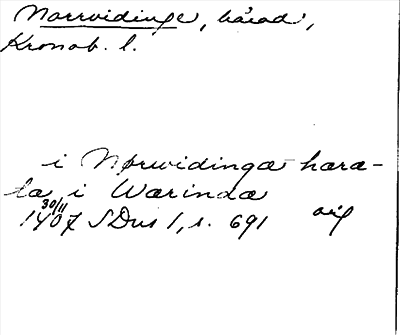 Norrvidinge, härad,
Kronob. l.
i Nørwidinga hara-
ta i Warinda
30/11
1407 SDns 1, s. 691 orig